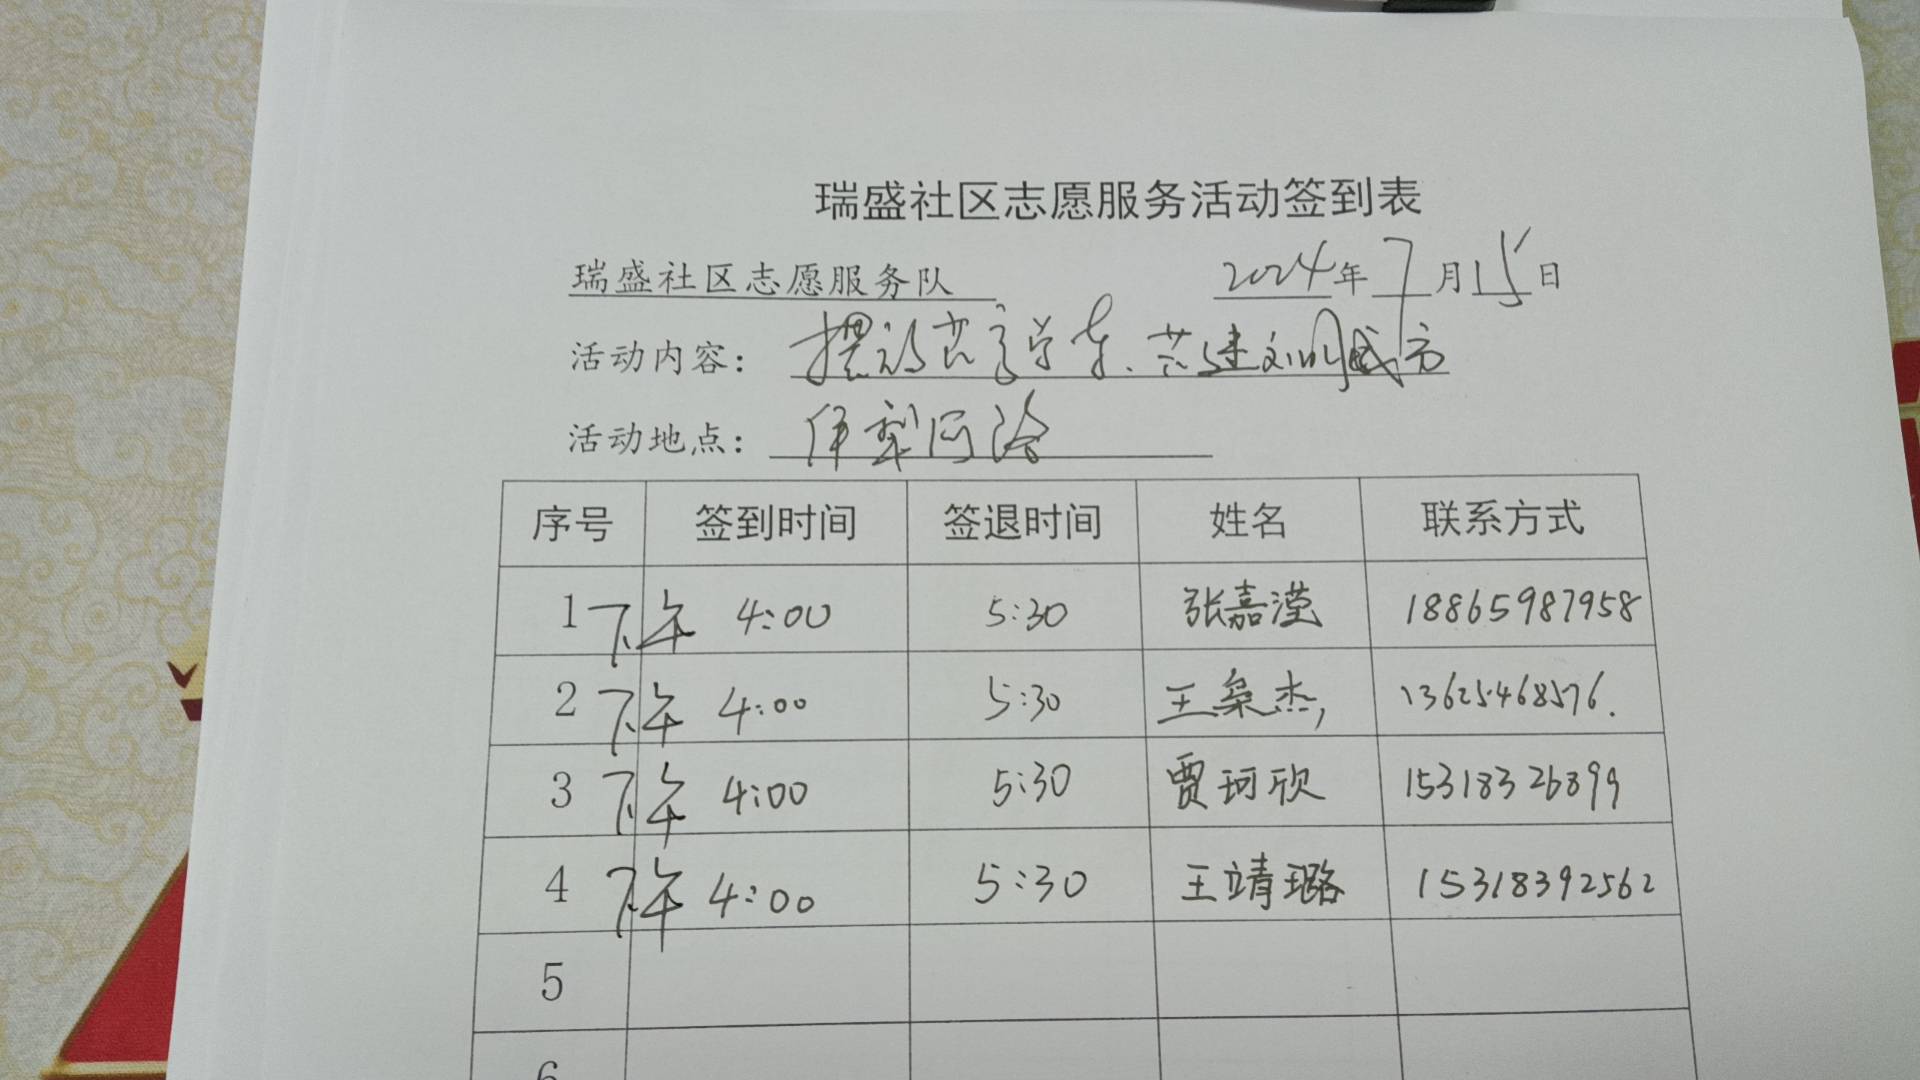 瑞盛社区志愿服务活动签到表
瑞盛社区志愿服务队 2024年7月15日
活动内容：摆放共享单车.共建文明城市
活动地点：伊犁河路
序号 签到时间 签退时间 姓名 联系方式
1 下午 4:00 5:30 张嘉滢 18865987958
2 下午 4:00 5:30 王杰, 13625468576.
3 下午 4:00 5:30 贾珂欣 15318326899
4 下午 4:00 5:30 王靖璐 15318392562
5
6